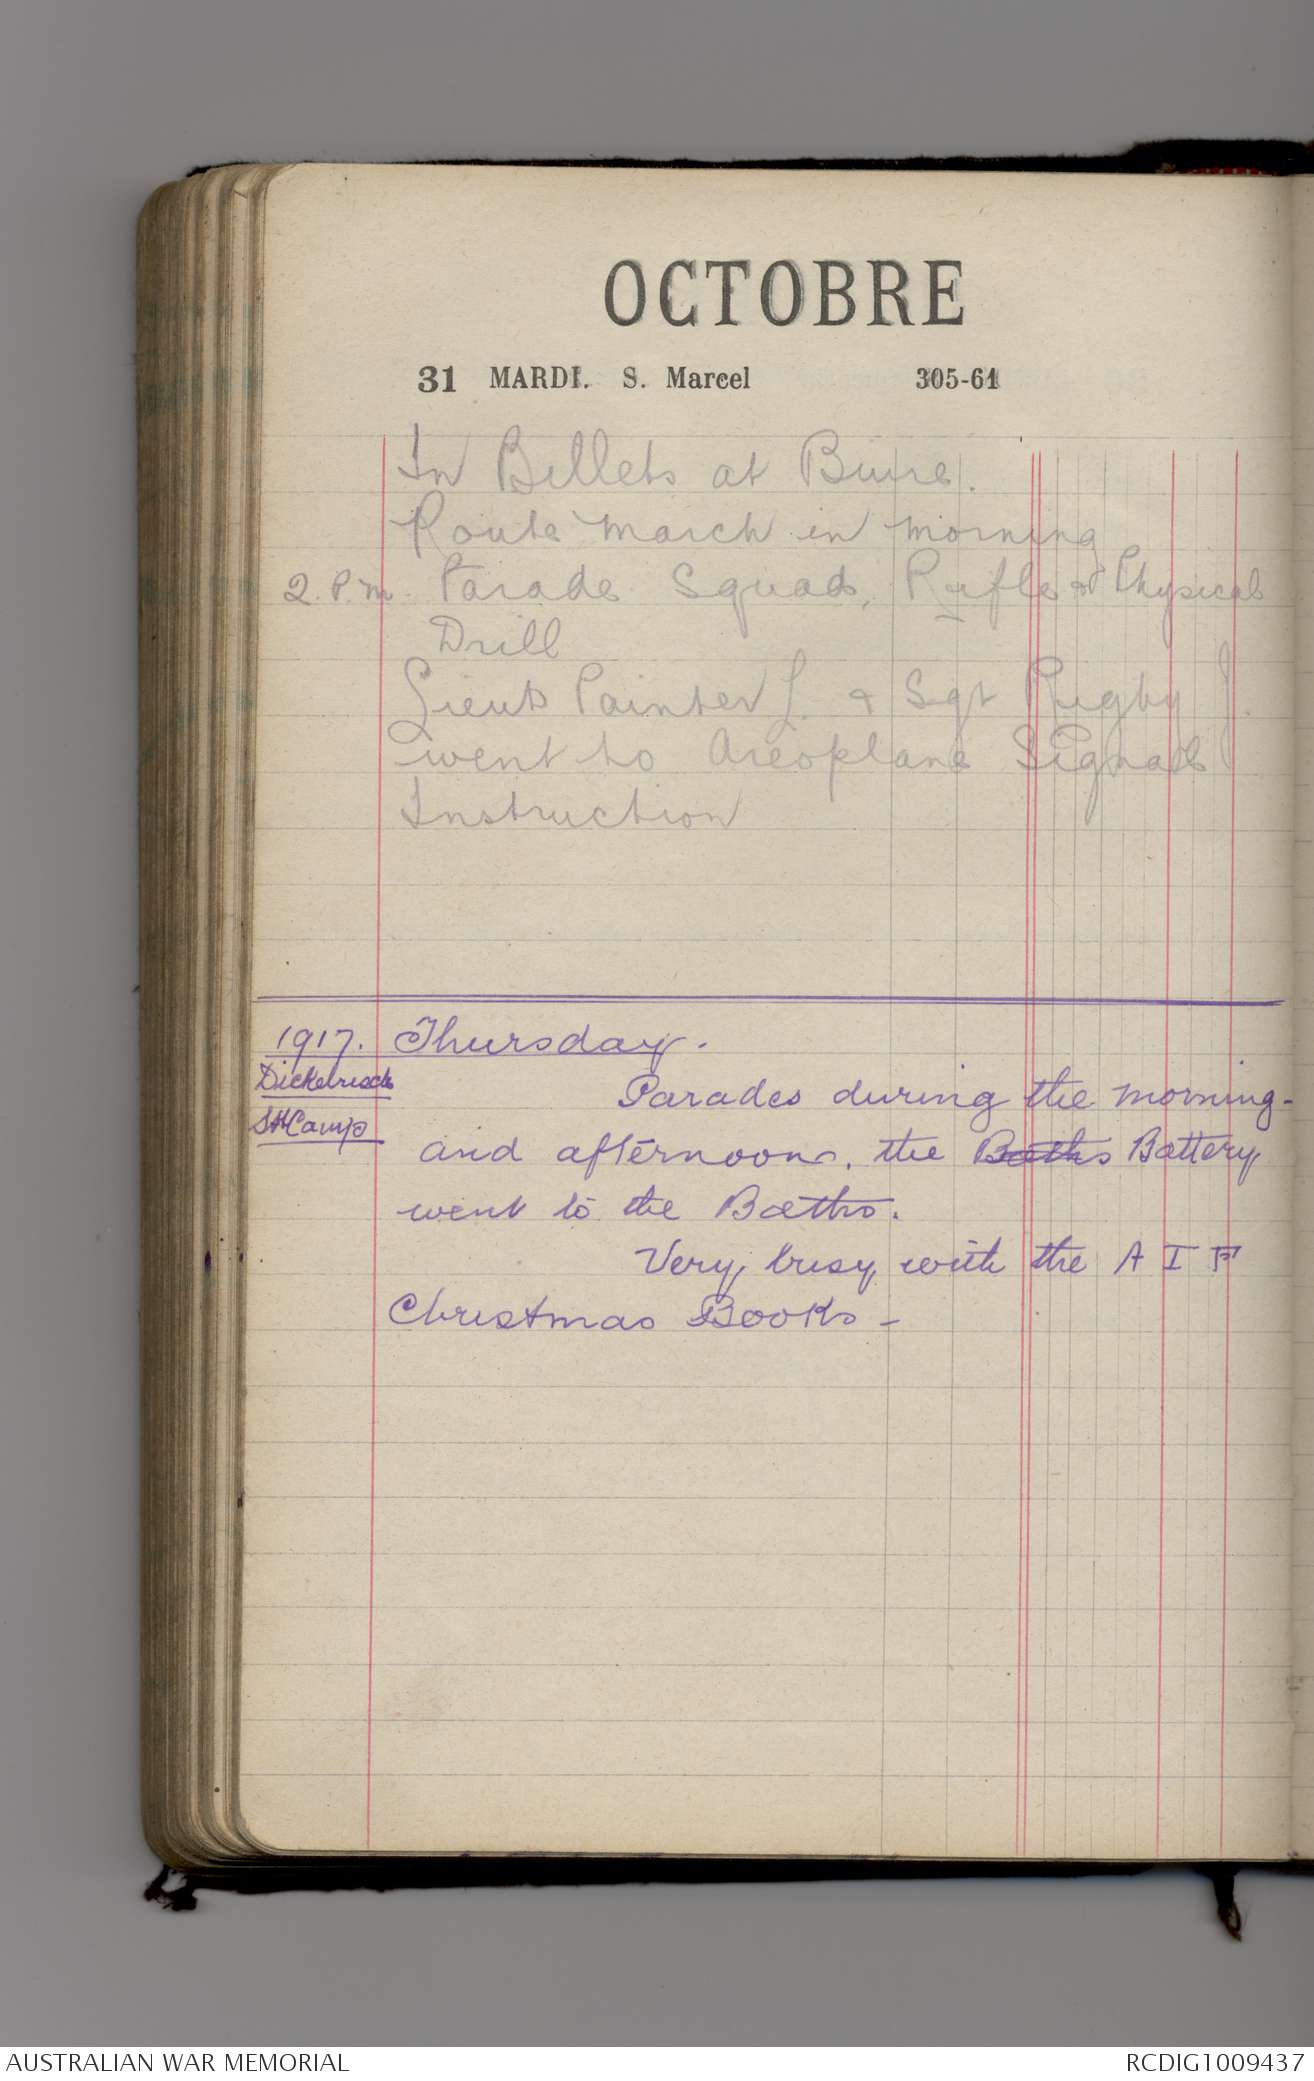 OCTOBRE
31 MARDI. S. Marcel 305-61
In Billets at Buire.
Route march in morning
2. P.m. Parade Squad, Rifle & Physical
Drill
Lieut Painter L. & Sgt Rigby J.
went to Areoplane Signals
Instruction
1917. Thursday.
Parades during the morning-
Camp
and afternoon. the Baths Battery
went to the Baths.
Very busy with the A I F
Christmas Books -
AUSTRALIAN WAR MEMORIAL RCDIG1009437